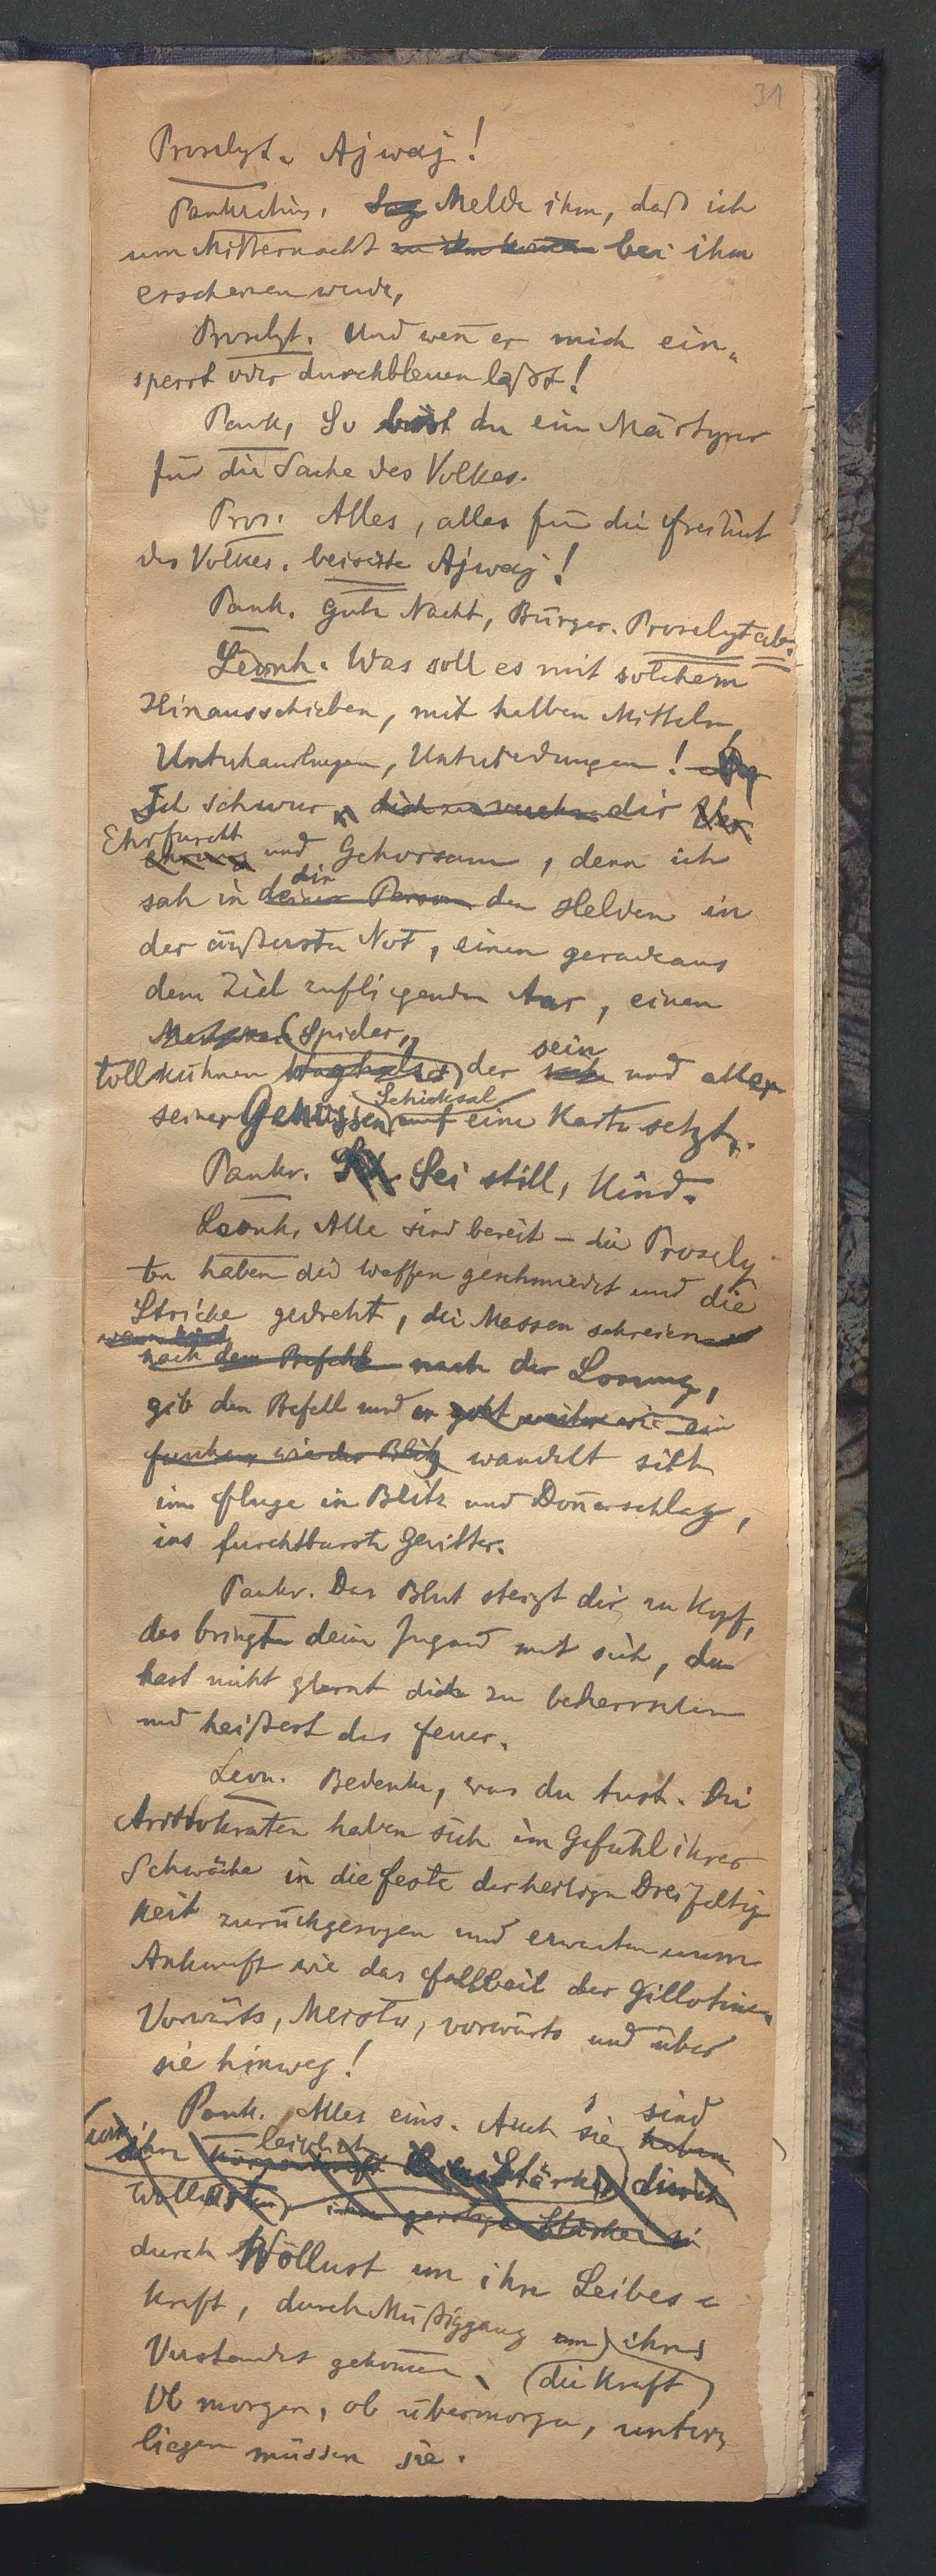 31
Proselyt. Ajwaj!
Pankratius. Sag Melde ihm, daß ich
um Mitternacht zu ihm komme bei ihm
erscheinen werde,
Proselyt. Und wen̄ er mich ein-
sperrt oder durchbleuen laßt!
Pank, So bist du ein Märtyrer
für die Sache des Volkes.
Pros. Alles, alles für die Freiheit
des Volkes. beiseite Ajwaj!
Pank. Gute Nacht, Bürger. Proselyt ab.
Leonh. Was soll es mit solchem
Hinausschieben, mit halben Mitteln,
Unterhandlungen, Unterredungen!
Ich schwur dir Ver
Ehrfurcht
ehrung und Gehorsam, denn ich
dir
sah in deiner Person den Helden in
der äußersten Not, einen geradeaus
dem Ziel zufliegenden Aar, einen
Spieler,
sein
tollkühnen Waghals, der und allen
Schicksal
seiner Genossen auf eine Karte setzt.
Pankr. Sei still, Kind.
Leonh. Alle sind bereit – die Prosely
ten haben die Waffen geschmiedet und die
Stricke gedreht, die Massen schreien
nach dem Befehl nach der Losung,
gib den Befehl und er geht weiter wie ein
Funken, wie der Blitz wandelt sich
im Fluge in Blitz und Don̄erschlag,
ins furchtbarste Gewitter.
Pankr. Das Blut steigt dir zu Kopf,
das bringt deine Jugend mit sich, du
hast nicht glernt dich zu beherrschen
und heißest das Feuer.
Leon. Bedenke, was du tust. Die
Aristokraten haben sich im Gefühl ihrer
Schwäche in die Feste der heiligen Dreifaltig
keit zurückgezogen und erwarten unsere
Ankunft wie das Fallbeil der Gillotine.
Vorwärts, Meister, vorwärts und über
sie hinweg!
Pank. Alles eins. Auch sie haben
sind
um ihre leiblich Stärke durch
Wollust, ihre geistige Stärke
durch Wollust um ihre Leibes=
kraft, durch Müßiggang um ihres
Verstandes gekom̄en. (die Kraft)
Ob morgen, ob übermorgen, unter=
liegen müssen sie.